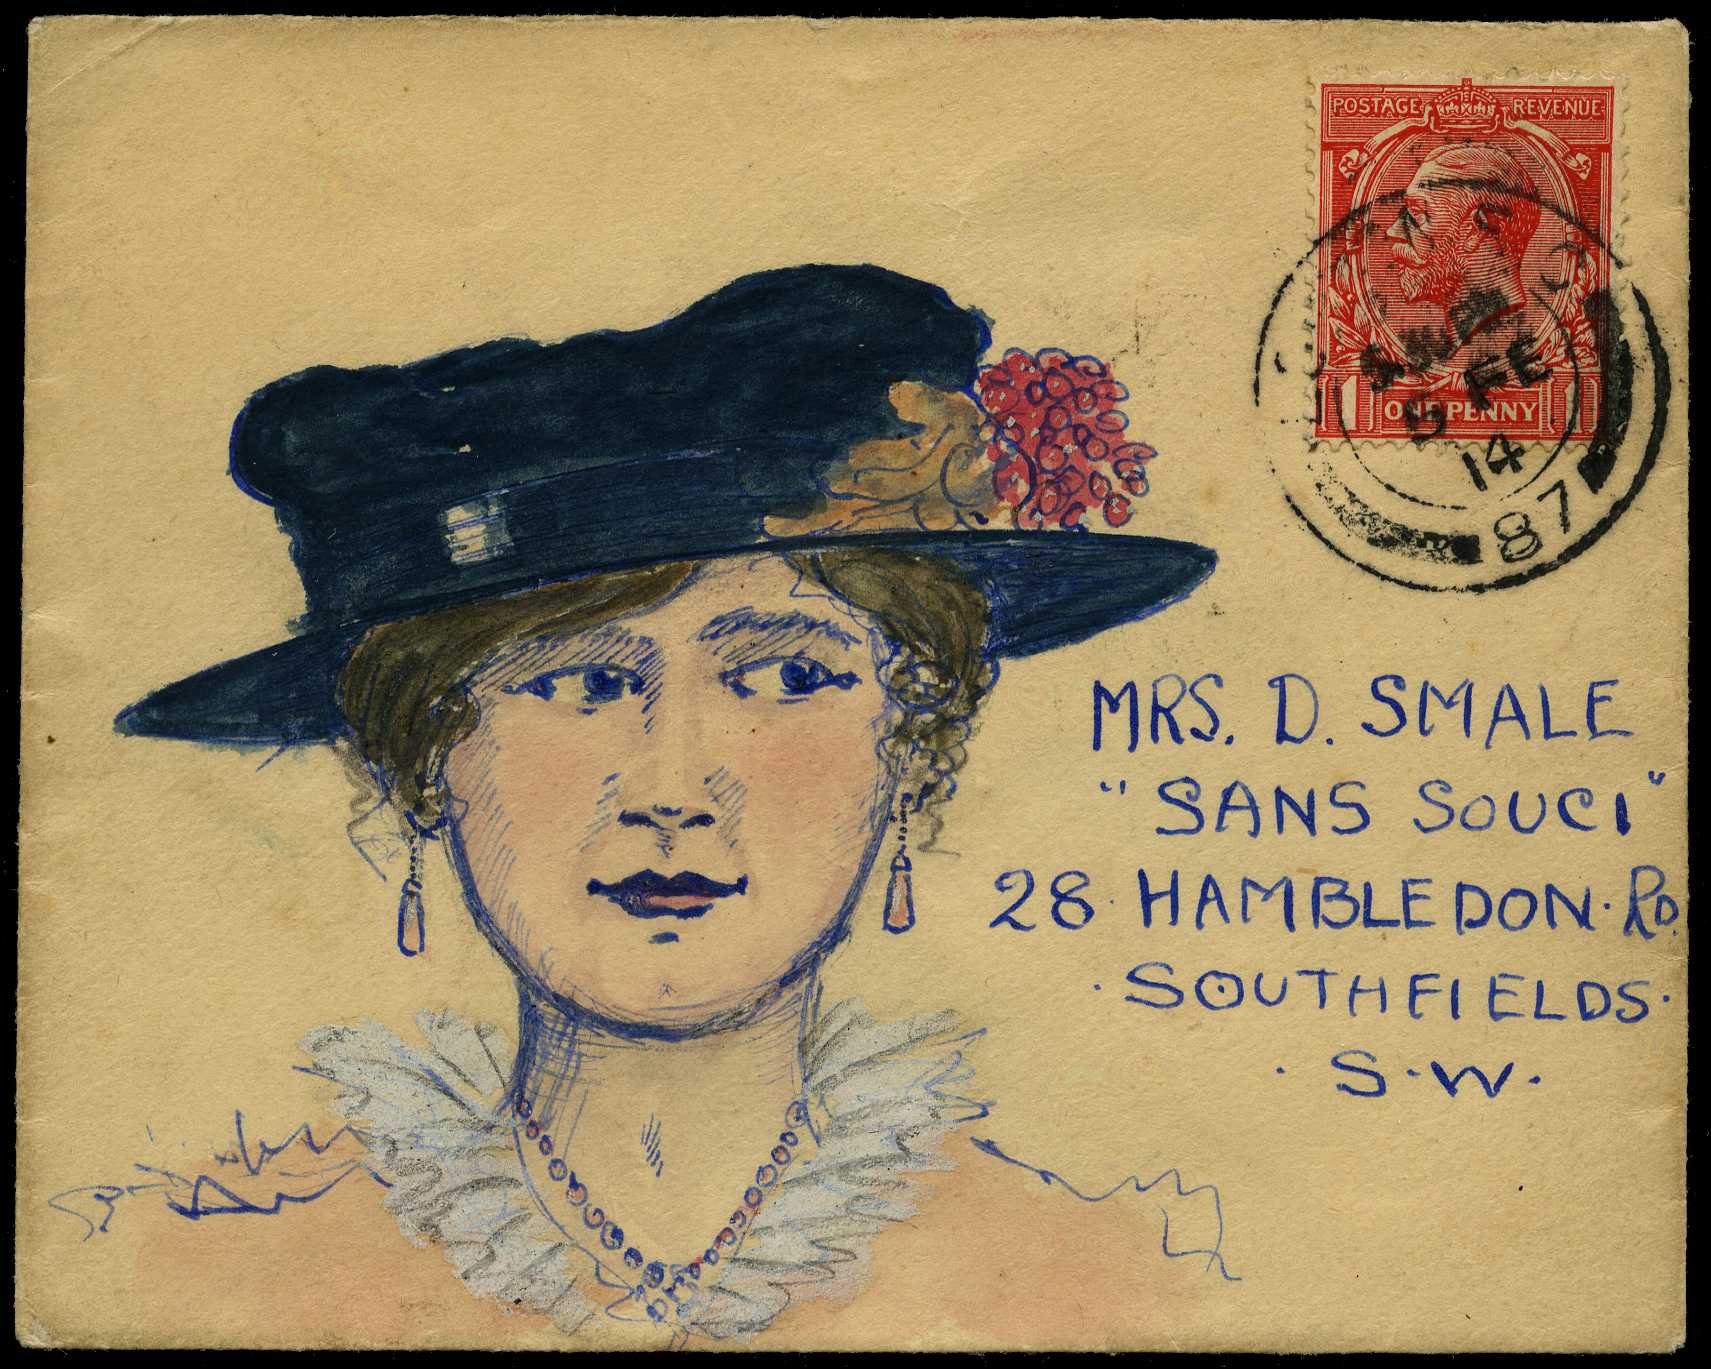 POSTAGE REVENUE
1 ONE PENNY 1
5 FE
14
87
MRS. D. SMALE
"SANS SOUCI"
28 · HAMBLEDON · RD.
· SOUTHFIELDS ·
· S · W ·